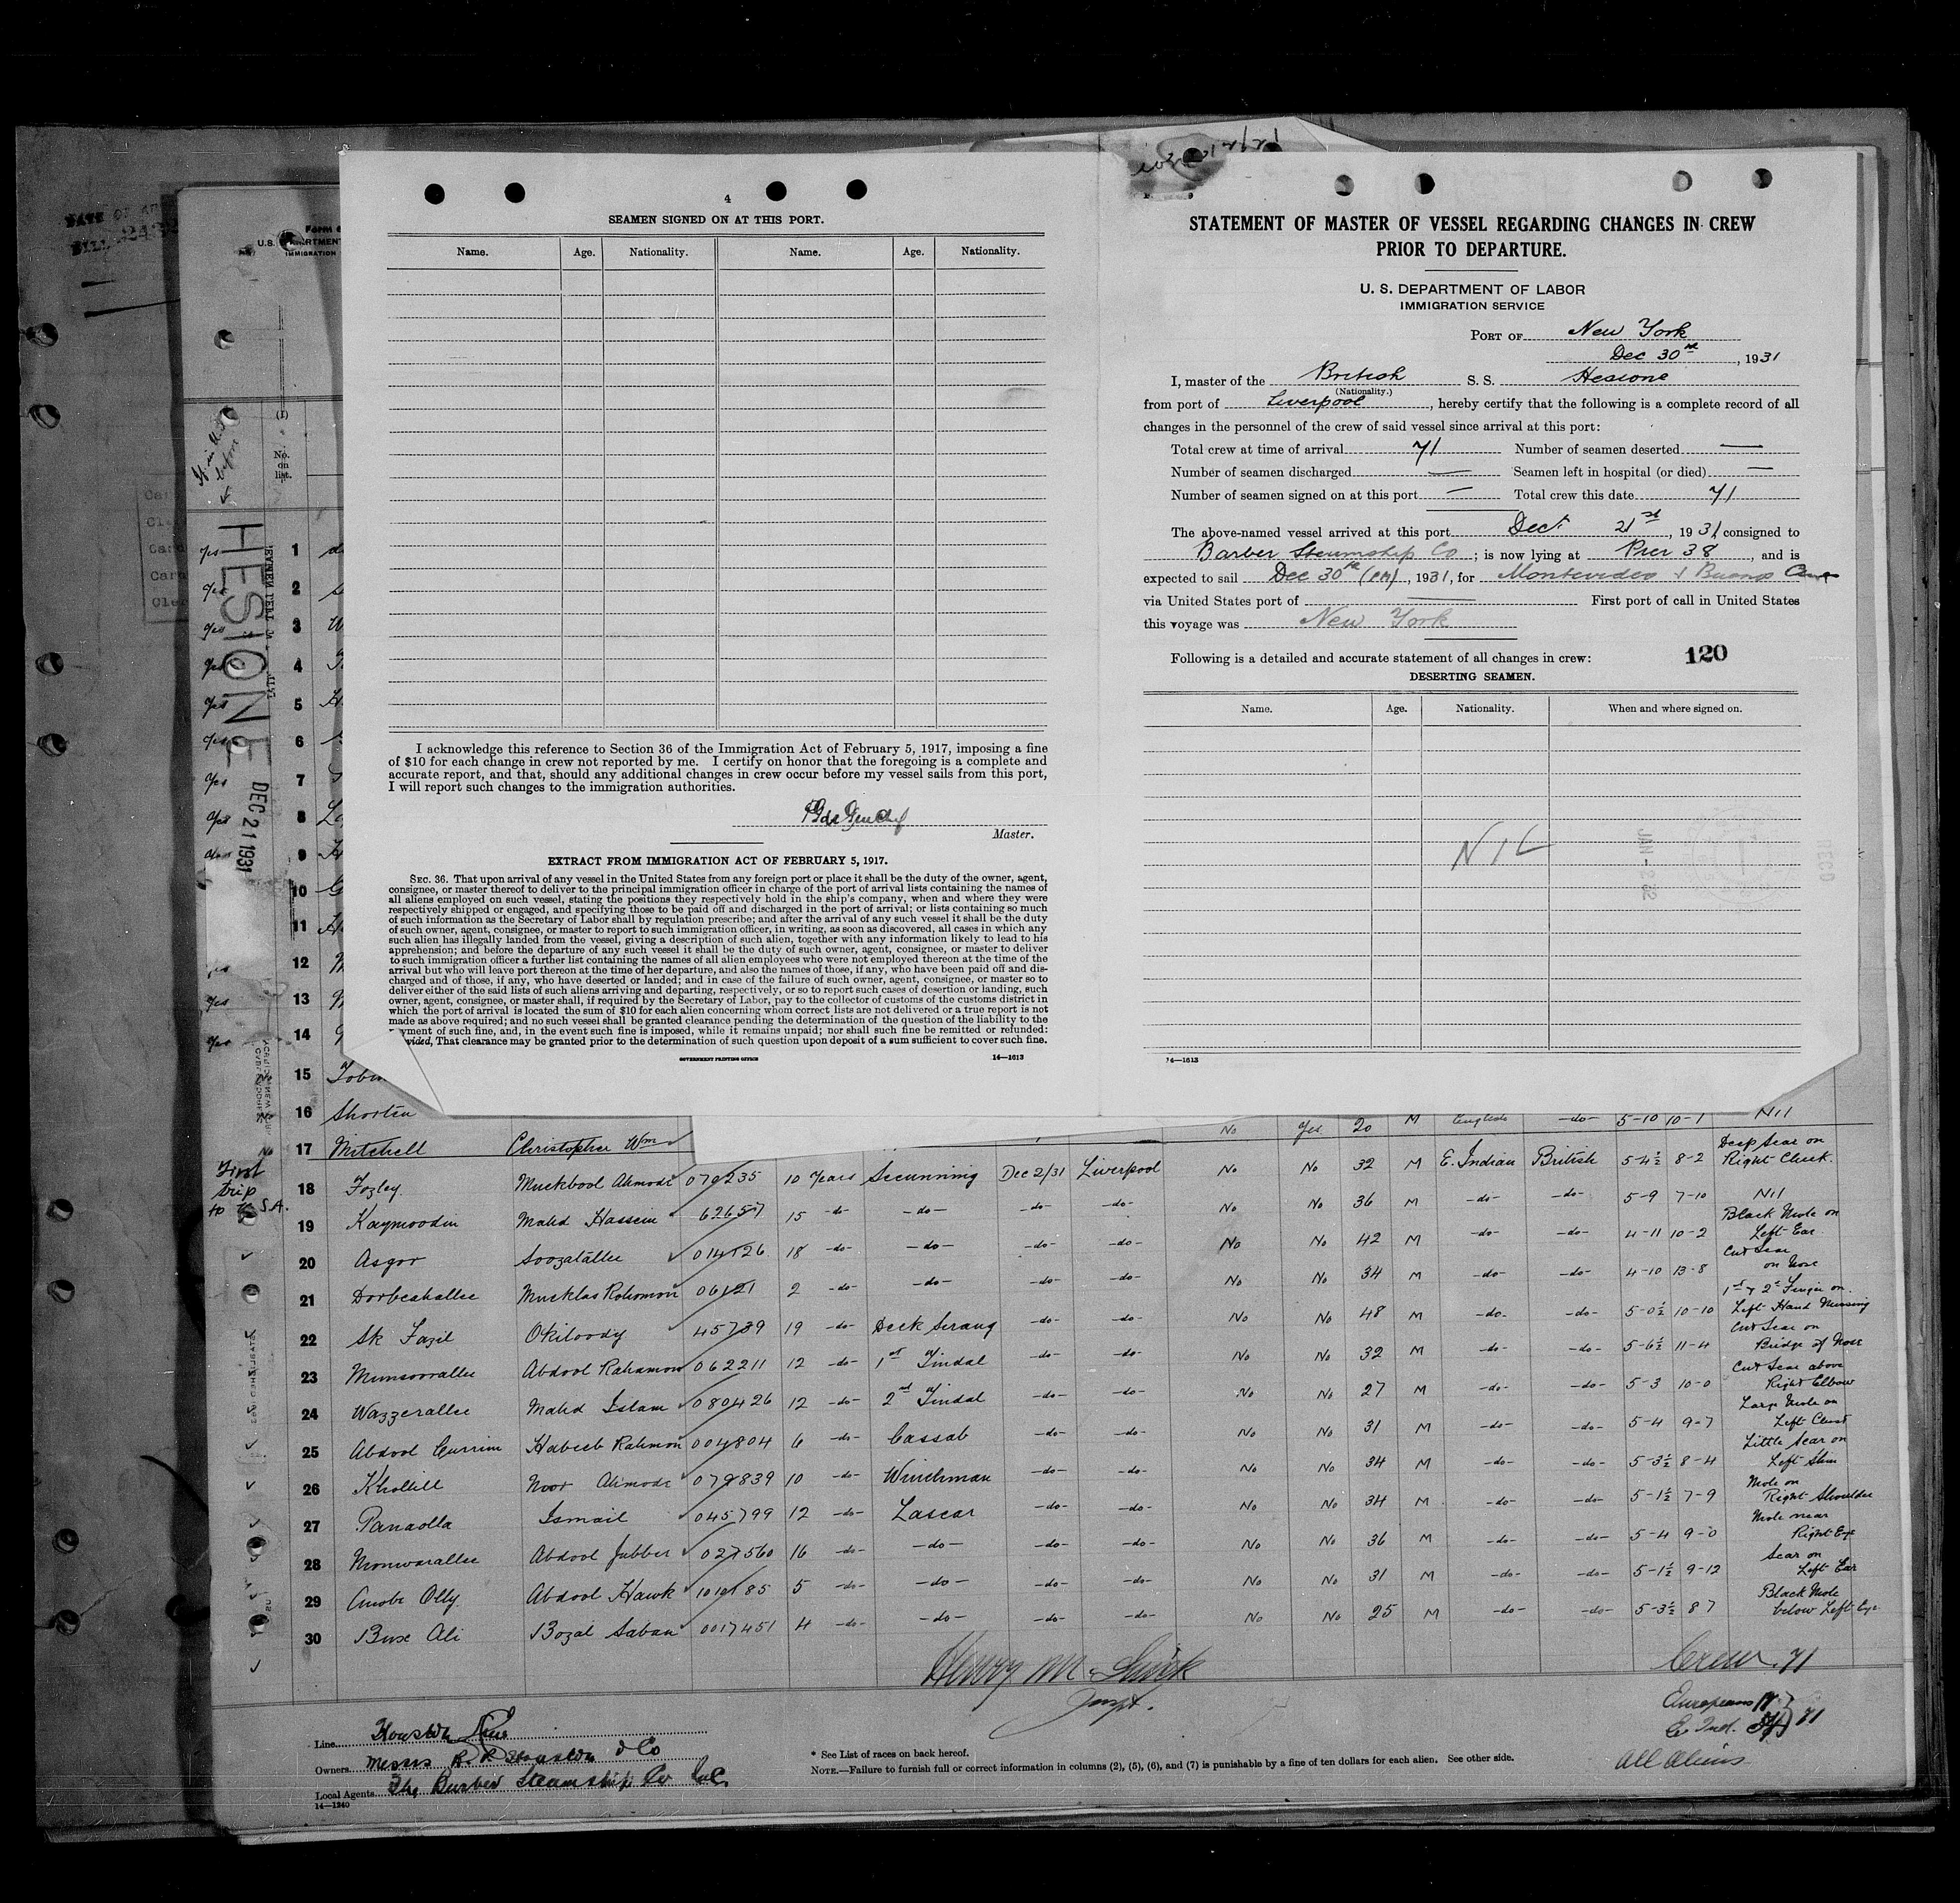 4
SEAMEN SIGNED ON AT THIS PORT.
Name. Age. Nationality. Name. Age. Nationality.
I acknowledge this reference to Section 36 of the Immigration Act of February 5, 1917, imposing a fine
of $10 for each change in crew not reported by me. I certify on honor that the foregoing is a complete and
accurate report, and that, should any additional changes in crew occur before my vessel sails from this port,
I will report such changes to the immigration authorities.
Master.
EXTRACT FROM IMMIGRATION ACT OF FEBRUARY 5, 1917.
SEC. 36. That upon arrival of any vessel in the United States from any foreign port or place it shall be the duty of the owner, agent,
consignee, or master thereof to deliver to the principal immigration officer in charge of the port of arrival lists containing the names of
all aliens employed on such vessel, stating the positions they respectively hold in the ship's company, when and where they were
respectively shipped or engaged, and specifying those to be paid off and discharged in the port of arrival; or lists containing so much
of such information as the Secretary of Labor shall by regulation prescribe; and after the arrival of any such vessel it shall be the duty
of such owner, agent, consignee, or master to report to such immigration officer, in writing, as soon as discovered, all cases in which any
such alien has illegally landed from the vessel, giving a description of such alien, together with any information likely to lead to his
apprehension; and before the departure of any such vessel it shall be the duty of such owner, agent, consignee, or master to deliver
to such immigration officer a further list containing the names of all alien employees who were not employed thereon at the time of the
arrival but who will leave port thereon at the time of her departure, and also the names of those, if any, who have been paid off and dis-
charged and of those, if any, who have deserted or landed; and in case of the failure of such owner, agent, consignee, or master so to
deliver either of the said lists of such aliens arriving and departing, respectively, or so to report such cases of desertion or landing, such
owner, agent, consignee, or master shall, if required by the Secretary of Labor, pay to the collector of customs of the customs district in
which the port of arrival is located the sum of $10 for each alien concerning whom correct lists are not delivered or a true report is not
made as above required; and no such vessel shall be granted clearance pending the determination of the question of the liability to the
yment of such fine, and, in the event such fine is imposed, while it remains unpaid; nor shall such fine be remitted or refunded:
vided, That clearance may be granted prior to the determination of such question upon deposit of a sum sufficient to cover such fine.
GOVERNMENT PRINTING OFFICE 14—1613
STATEMENT OF MASTER OF VESSEL REGARDING CHANGES IN CREW
PRIOR TO DEPARTURE.
U. S. DEPARTMENT OF LABOR
IMMIGRATION SERVICE
PORT OF New York
Dec 30th, 1931
I, master of the British S. S. Hesione
(Nationality.)
from port of Liverpool, hereby certify that the following is a complete record of all
changes in the personnel of the crew of said vessel since arrival at this port:
Total crew at time of arrival 71 Number of seamen deserted —
Number of seamen discharged — Seamen left in hospital (or died) —
Number of seamen signed on at this port — Total crew this date 71
The above-named vessel arrived at this port Dec 21st, 1931, consigned to
Barber Steamship Co; is now lying at Pier 38, and is
expected to sail Dec 30th (PM), 1931, for Montevideo & Buenos
via United States port of — First port of call in United States
this voyage was New York
Following is a detailed and accurate statement of all changes in crew: 120
DESERTING SEAMEN.
Name. Age. Nationality. When and where signed on.
NIL
JAN -2 32
REC'D
14—1613
U.S.
IMMIGRATION
No. on list.
HESIONE
DEC 21 1931
Yes 1
Yes 2
Yes 3
Yes 4
Yes 5
Yes 6
Yes 7
Yes 8
9
10
11
12
Yes 13
Yes 14
No 15 Tobin
No 16 Shorten No Yes 20 M English -do- 5-10 10-1 Nil
No 17 Mitchell Christopher Wm
First trip to U.S.A.
18 Fozley Muckbool Ahmode 079235 10 Years Secunning Dec 2/31 Liverpool No No 32 M E. Indian British 5-4½ 8-2 Deep Scar on Right Cheek.
19 Kaymoodin Mahd Hassein 62657 15 -do- -do- -do- -do- No No 36 M -do- -do- 5-9 7-10 Nil
20 Asgor Soozatallee 014526 18 -do- -do- -do- -do- No No 42 M -do- -do- 4-11 10-2 Black Mole on Left Ear
21 Dorbeahallee Mucklas Rohomon 06121 2 -do- -do- -do- -do- No No 34 M -do- -do- 4-10 13-8 Cut Scar on Nose
22 Sk Fazil Okiloody 45739 19 -do- Deck Serang -do- -do- No No 48 M -do- -do- 5-0½ 10-10 1st & 2d Finger on Left Hand Missing
23 Munsoorallee Abdool Rahamon 062211 12 -do- 1st Tindal -do- -do- No No 32 M -do- -do- 5-6½ 11-4 Cut Scar on Bridge of Nose
24 Wazzerallee Mahd Islam 080426 12 -do- 2nd Tindal -do- -do- No No 27 M -do- -do- 5-3 10-0 Cut Scar above Right Elbow
25 Abdool Currim Habeeb Rahmon 004804 6 -do- Cassab -do- -do- No No 31 M -do- -do- 5-4 9-7 Large Mole on Left Chest
26 Khollill Noor Ahmode 079839 10 -do- Winchman -do- -do- No No 34 M -do- -do- 5-3½ 8-4 Little Scar on Left Shin
27 Panaolla Ismail 045799 12 -do- Lascar -do- -do- No No 34 M -do- -do- 5-1½ 7-9 Mole on Right Shoulder
28 Monwarallee Abdool Jubber 027560 16 -do- -do- -do- -do- No No 36 M -do- -do- 5-4 9-0 Mole near Right Eye
29 Amobe Olly Abdool Hawk 101085 5 -do- -do- -do- -do- No No 31 M -do- -do- 5-1½ 9-12 Scar on Left Ear
30 Buse Ali Bozal Saban 0017451 4 -do- -do- -do- -do- No No 25 M -do- -do- 5-3½ 8 7 Black Mole below Left Eye
Crew 71
Europeans 17
E. Ind. 71
All Aliens
Line Houston Line
Owners Messrs R. P. Houston & Co
Local Agents The Barber Steamship Co Inc.
14—1240
* See List of races on back hereof.
NOTE.—Failure to furnish full or correct information in columns (2), (5), (6), and (7) is punishable by a fine of ten dollars for each alien. See other side.